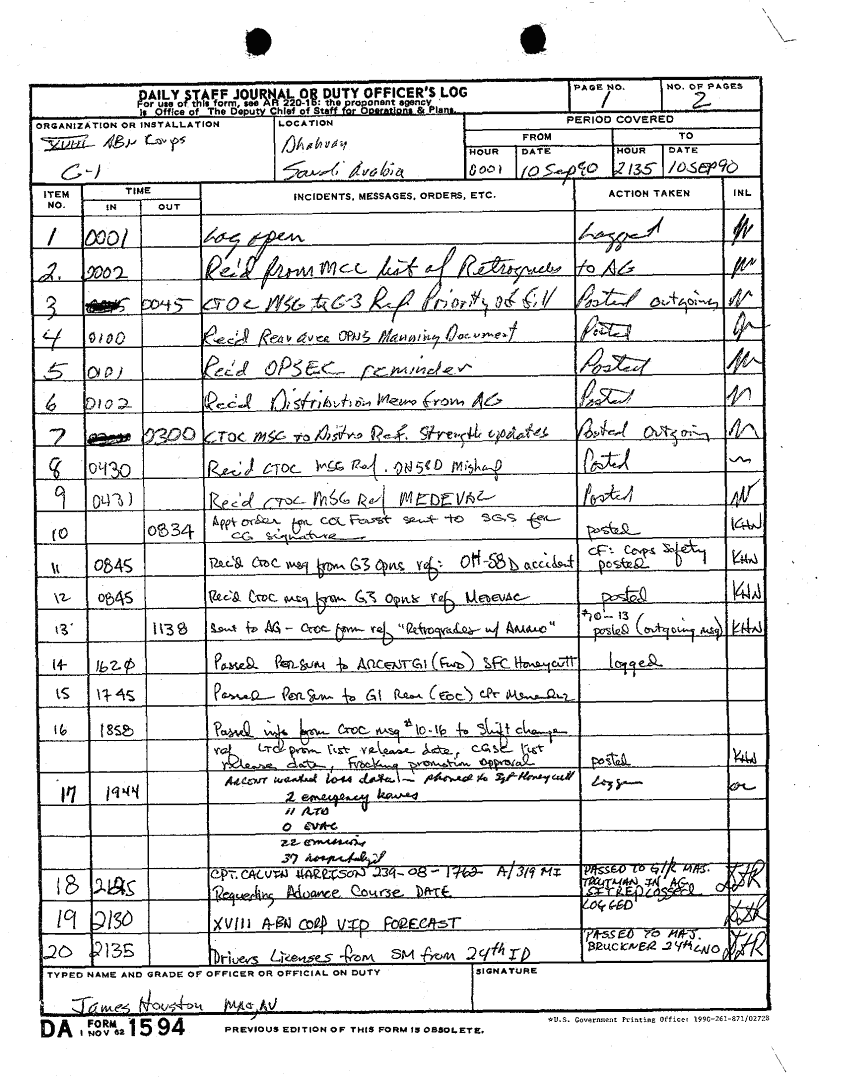 DAILY STAFF JOURNAL OR DUTY OFFICER'S LOG
For use of this form, see AR 220-15: the proponent agency
is Office of The Deputy Chief of Staff for Operations & Plans.
PAGE NO.
1
NO. OF PAGES
2
ORGANIZATION OR INSTALLATION
XVIII ABN Corps
G-1
LOCATION
Dhahran
Saudi Arabia
PERIOD COVERED
FROM
TO
HOUR
DATE
HOUR
DATE
0001
10 Sep 90
2135
10 SEP 90
ITEM NO.
TIME
IN
OUT
INCIDENTS, MESSAGES, ORDERS, ETC.
ACTION TAKEN
INL
1 0001 Log open Logged
2. 0002 Rec'd from MCC list of Retrogrades to AG
3 0045 CTOC MSG to G-3 Ref Priority of fill Posted outgoing
4 0100 Rec'd Rear area OPNS Manning Document Posted
5 0101 Rec'd OPSEC reminder Posted
6 0102 Rec'd Distribution Memo from AG Posted
7 0300 CTOC MSG to Distro Ref. Strength updates Posted Outgoing
8 0430 Rec'd CTOC MSG Ref. Mishap Posted
9 0431 Rec'd CTOC MSG Ref MEDEVAC Posted
10 0834 Appt order for COL Faust sent to SGS for posted KHN
CG signature
11 0845 Rec'd CTOC msg from G3 Opns ref: OH-58D accident CF: Corps Safety posted KHN
12 0845 Rec'd CTOC msg from G3 Opns ref MEDEVAC posted KHN
13 1138 sent to AG - CTOC form ref "Retrogrades w/ AMMO" #10-13 posted (outgoing msg) KHN
14 1620 Passed PERSUM to ARCENT G1 (Fwd) SFC Honeycutt logged
15 1745 Passed PERSUM to G1 Rear (EOC) CPT Menendez
16 1858 Passed info from CTOC msg #10-16 to Shift change
ref LTC prom list release date, CGSC list
release date, Frocking promotion approval posted KHN
17 1944 ARCENT wanted loss data - phoned to Sgt Honeycutt
2 emergency leaves
11 RTD
0 EVAC
22
37
18 2125 CPT. CALVIN HARRISON 239-08-1762 A/319 MI PASSED TO G1/R MAJ.
Requesting Advance Course DATE TRUTMAN IN AG
19 2130 XVIII ABN CORP VIP FORECAST LOGGED
20 2135 Drivers Licenses from SM from 24th ID PASSED TO MAJ. BRUCKNER 24th LNO
TYPED NAME AND GRADE OF OFFICER OR OFFICIAL ON DUTY
SIGNATURE
James Houston MAJ, AV
DA FORM 1 NOV 62 1594
PREVIOUS EDITION OF THIS FORM IS OBSOLETE.
*U.S. Government Printing Office: 1990-261-871/02728